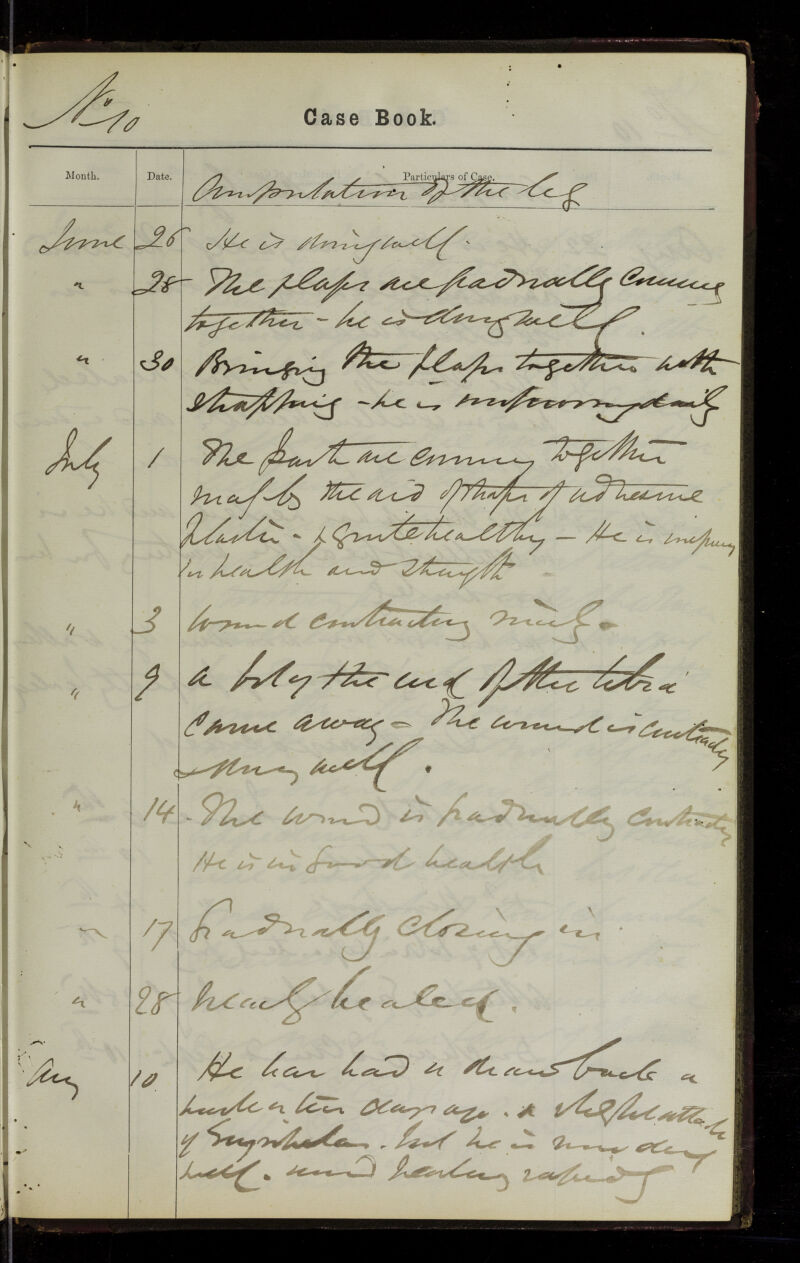 No 10
Case Book.
Month. Date. Particulars of Case.
Amputation of the leg
June 26 He is doing well.
" 28 The flaps are gradually coming
together - he is doing well.
" 30 Bringing the flaps together with
strapping - he is improving daily
July 1 The parts are coming together
by the aid of straps of adhesive
plaster - & quite healthy - He is improving
in health and strength
" 3 Wound contracting nicely -
" 9 a bit of the end of the tibia
came away - The wound is contracting
& doing well.
" 14 - The wound is gradually contracting
He is in good health
" 17 Gradually closing in
" 28 Nearly healed.
Aug 10 He has had a draw back a
week or ten days ago. a slight attack
of Erysipelas. but he is now doing
well. wound healing rapidly